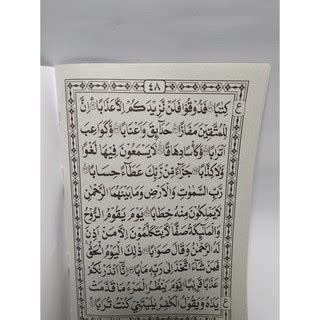 ٤٨
كِتٰبًا ۙ فَذُوْقُوْا فَلَنْ نَّزِيْدَكُمْ اِلَّا عَذَابًا ۙ اِنَّ
لِلْمُتَّقِيْنَ مَفَازًا ۙ حَدَآئِقَ وَاَعْنَابًا ۙ وَّكَوَاعِبَ
اَتْرَابًا ۙ وَّكَأْسًا دِهَاقًا ۙ لَا يَسْمَعُوْنَ فِيْهَا لَغْوًا
وَّلَا كِذّٰبًا ۙ جَزَآءً مِّنْ رَّبِّكَ عَطَآءً حِسَابًا ۙ
رَّبِّ السَّمٰوٰتِ وَالْاَرْضِ وَمَا بَيْنَهُمَا الرَّحْمٰنِ
لَا يَمْلِكُوْنَ مِنْهُ خِطَابًا ۙ يَوْمَ يَقُوْمُ الرُّوْحُ
وَالْمَلٰٓئِكَةُ صَفًّا لَّا يَتَكَلَّمُوْنَ اِلَّا مَنْ اَذِنَ
لَهُ الرَّحْمٰنُ وَقَالَ صَوَابًا ۙ ذٰلِكَ الْيَوْمُ الْحَقُّ ۚ
فَمَنْ شَآءَ اتَّخَذَ اِلٰى رَبِّهٖ مَاٰبًا ۙ اِنَّآ اَنْذَرْنٰكُمْ
عَذَابًا قَرِيْبًا ۙ يَّوْمَ يَنْظُرُ الْمَرْءُ مَا قَدَّمَتْ
يَدٰهُ وَيَقُوْلُ الْكٰفِرُ يٰلَيْتَنِيْ كُنْتُ تُرٰبًا ۙ